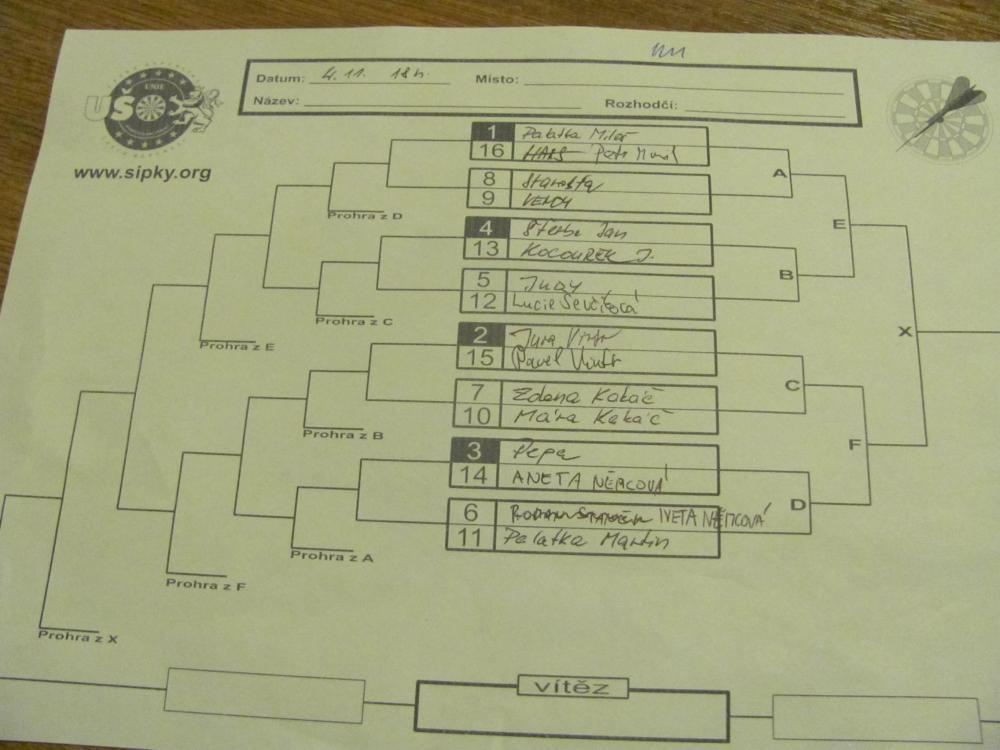 Datum: 4. 11. 18 h. Místo:
Název: Rozhodčí:
UNIE
UŠO
www.sipky.org
1 Palatka Miloš
16 HANS Petr
8 Starosta
9 VENDY
A
Prohra z D
4 Štěrba Jan
13 KOCOUREK J.
E
B
5 JUDY
12 Lucie Ševčíková
Prohra z C
2 Jura
15 Pavel
X
Prohra z E
C
7 Zdena Kakáč
10 Mára Kakáč
Prohra z B
F
3 Pepa
14 ANETA NĚMCOVÁ
D
6 IVETA NĚMCOVÁ
11 Palatka Martin
Prohra z A
Prohra z F
Prohra z X
vítěz